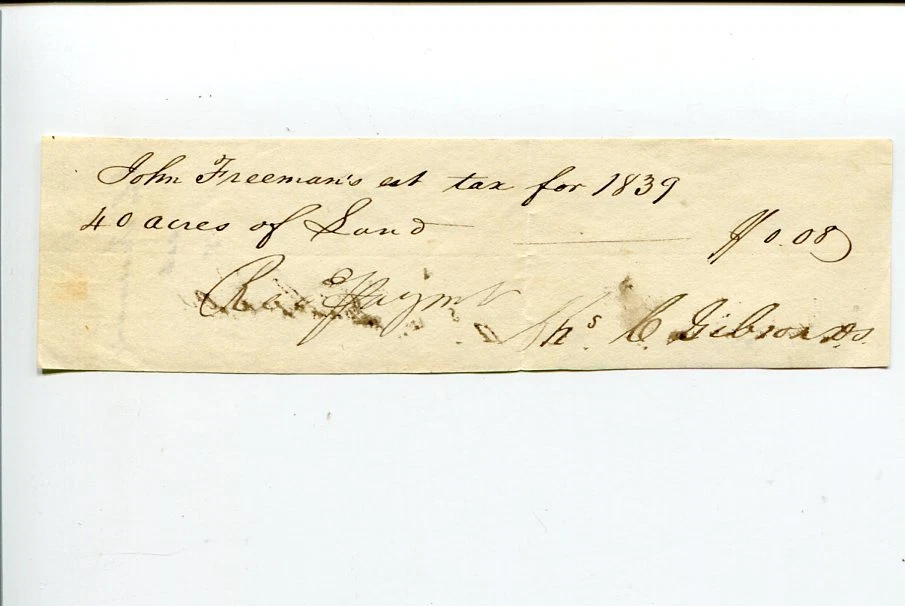 John Freeman's est tax for 1839
40 acres of Land $0.08
Rec. Paymt
Ths C Gibson DS.